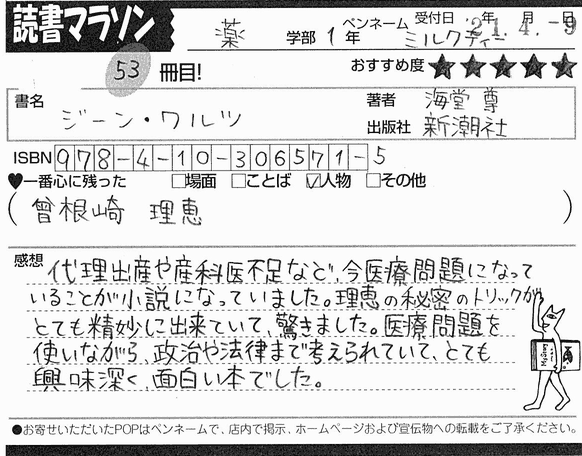 読書マラソン
薬 学部 1 年 ペンネーム ミルクティー 受付日 年 月 日
21.4.-9
53 冊目! おすすめ度 ★★★★★
書名 ジーン・ワルツ
著者 海堂 尊
出版社 新潮社
ISBN 978-4-10-306571-5
♥一番心に残った □場面 □ことば ☑人物 □その他
(曾根崎 理恵)
感想 代理出産や産科医不足など、今医療問題になって
いることが小説になっていました。理恵の秘密のトリックが
とても精妙に出来ていて、驚きました。医療問題を
使いながら、政治や法律まで考えられていて、とても
興味深く、面白い本でした。
●お寄せいただいたPOPはペンネームで、店内で掲示、ホームページおよび宣伝物への転載をご了承ください。